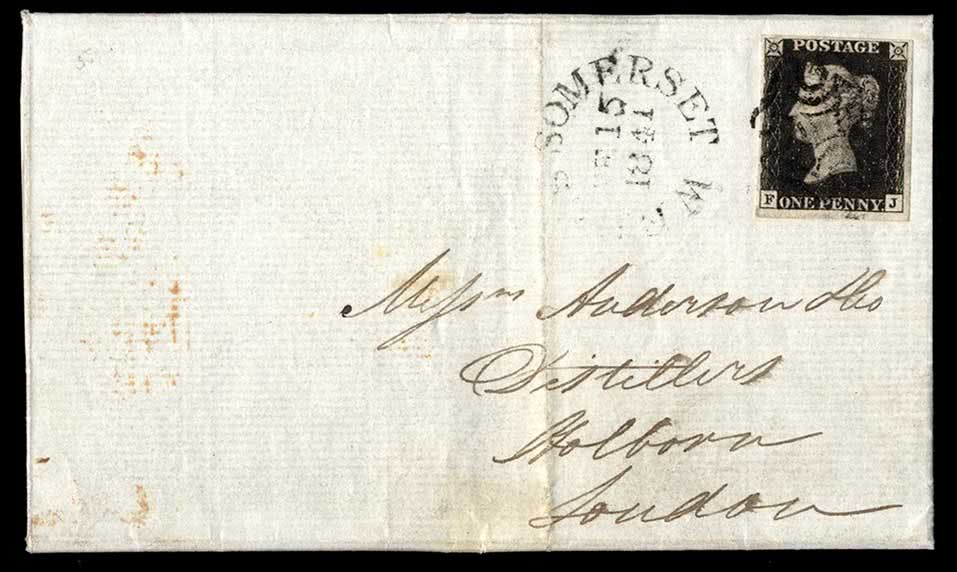 SOMERSET
15
1841
POSTAGE
F ONE PENNY. J
Messrs Anderson & Co
Distillers
Holborn
London